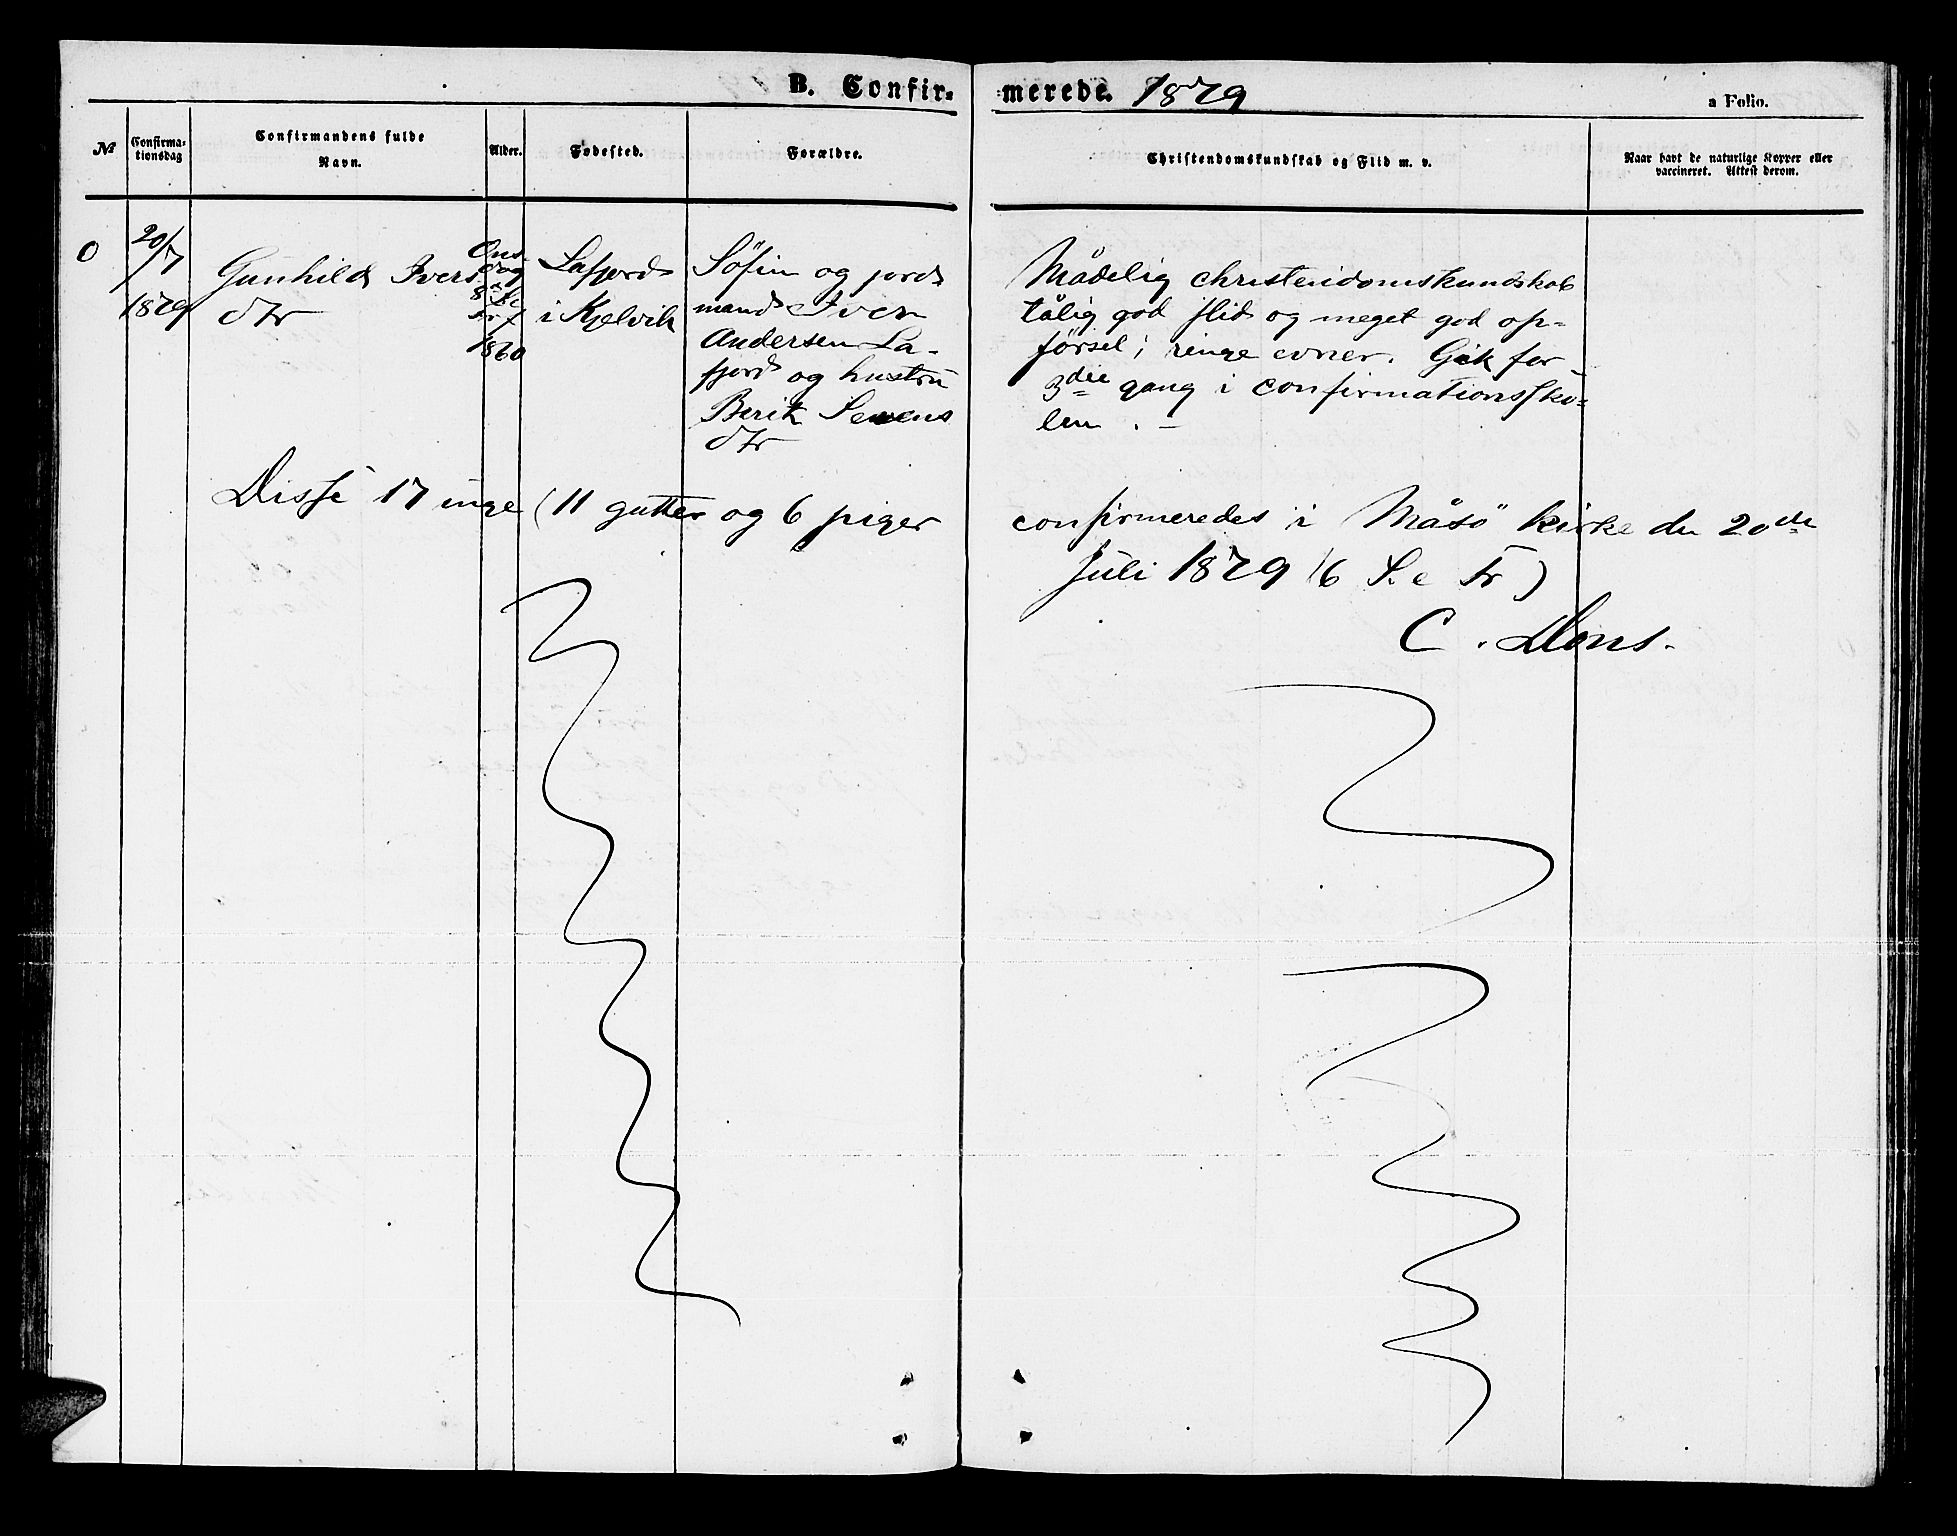 B. Confirmerede. 1879
a Folio.
№
Confirma-
tionsdag
Confirmandens fulde
Navn.
Alder.
Fødested.
Forældre.
Christendomskundskab og Flid m. v.
Naar havt de naturlige Kopper eller
vaccineret. Attest derom.
0
20/7
1879
Gunhild Ivers
dtr
Ons-
dag
8 S. e
Tr.
1860
Lafjord
i Kjelvik
Söfin og jord
mand Iver
Andersen La-
fjord og hustru
Berit
dtr
Mådelig christendomskundskab
tålig god flid og meget god op-
førsel; ringe evner. Gik for
3die gang i confirmationssko-
len . –
Disse 17 unge (11 gutter og 6 piger confirmeredes i Måsö kirke den 20de
Juli 1879 (6 S. e Tr)
C. Dons.